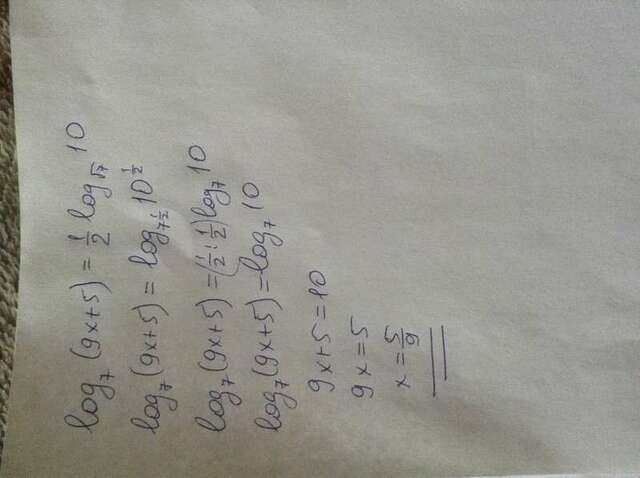 log₇ (9x+5) = 1/2 log_√7 10
log₇ (9x+5) = log_7^(1/2) 10^(1/2)
log₇ (9x+5) = (1/2 : 1/2) log₇ 10
log₇ (9x+5) = log₇ 10
9x+5 = 10
9x = 5
x = 5/9